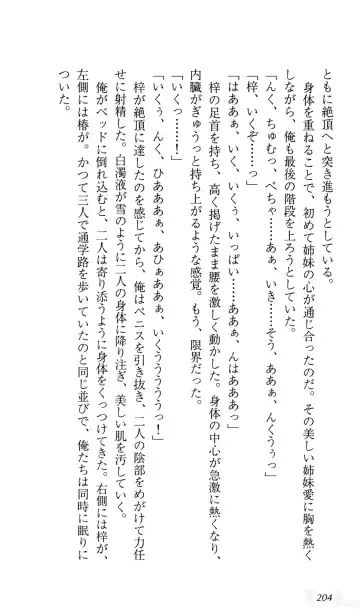 ともに絶頂へと突き進もうとしている。
身体を重ねることで、初めて姉妹の心が通じ合ったのだ。その美しい姉妹愛に胸を熱く
しながら、俺も最後の階段を上ろうとしていた。
「んく、ちゅむっ、ぺちゃ……あぁ、いき……そう、ああぁ、んくうぅっ」
「梓、いくぞ……っ」
「はああぁ、いく、いくぅ、いっぱい……ああぁ、んはああああっ」
梓の足首を持ち、高く掲げたまま腰を激しく動かした。身体の中心が急激に熱くなり、
内臓がぎゅうっと持ち上がるような感覚。もう、限界だった。
「いくっ……！」
「いくぅ、んく、ひああああぁ、あひぁああぁ、いくうううううっ！」
梓が絶頂に達したのを感じてから、俺はペニスを引き抜き、二人の陰部をめがけて力任
せに射精した。白濁液が雪のように二人の身体に降り注ぎ、美しい肌を汚していく。
俺がベッドに倒れ込むと、二人は寄り添うように身体をくっつけてきた。右側には梓が、
左側には椿が。かつて三人で通学路を歩いていたのと同じ並びで、俺たちは同時に眠りに
ついた。
204